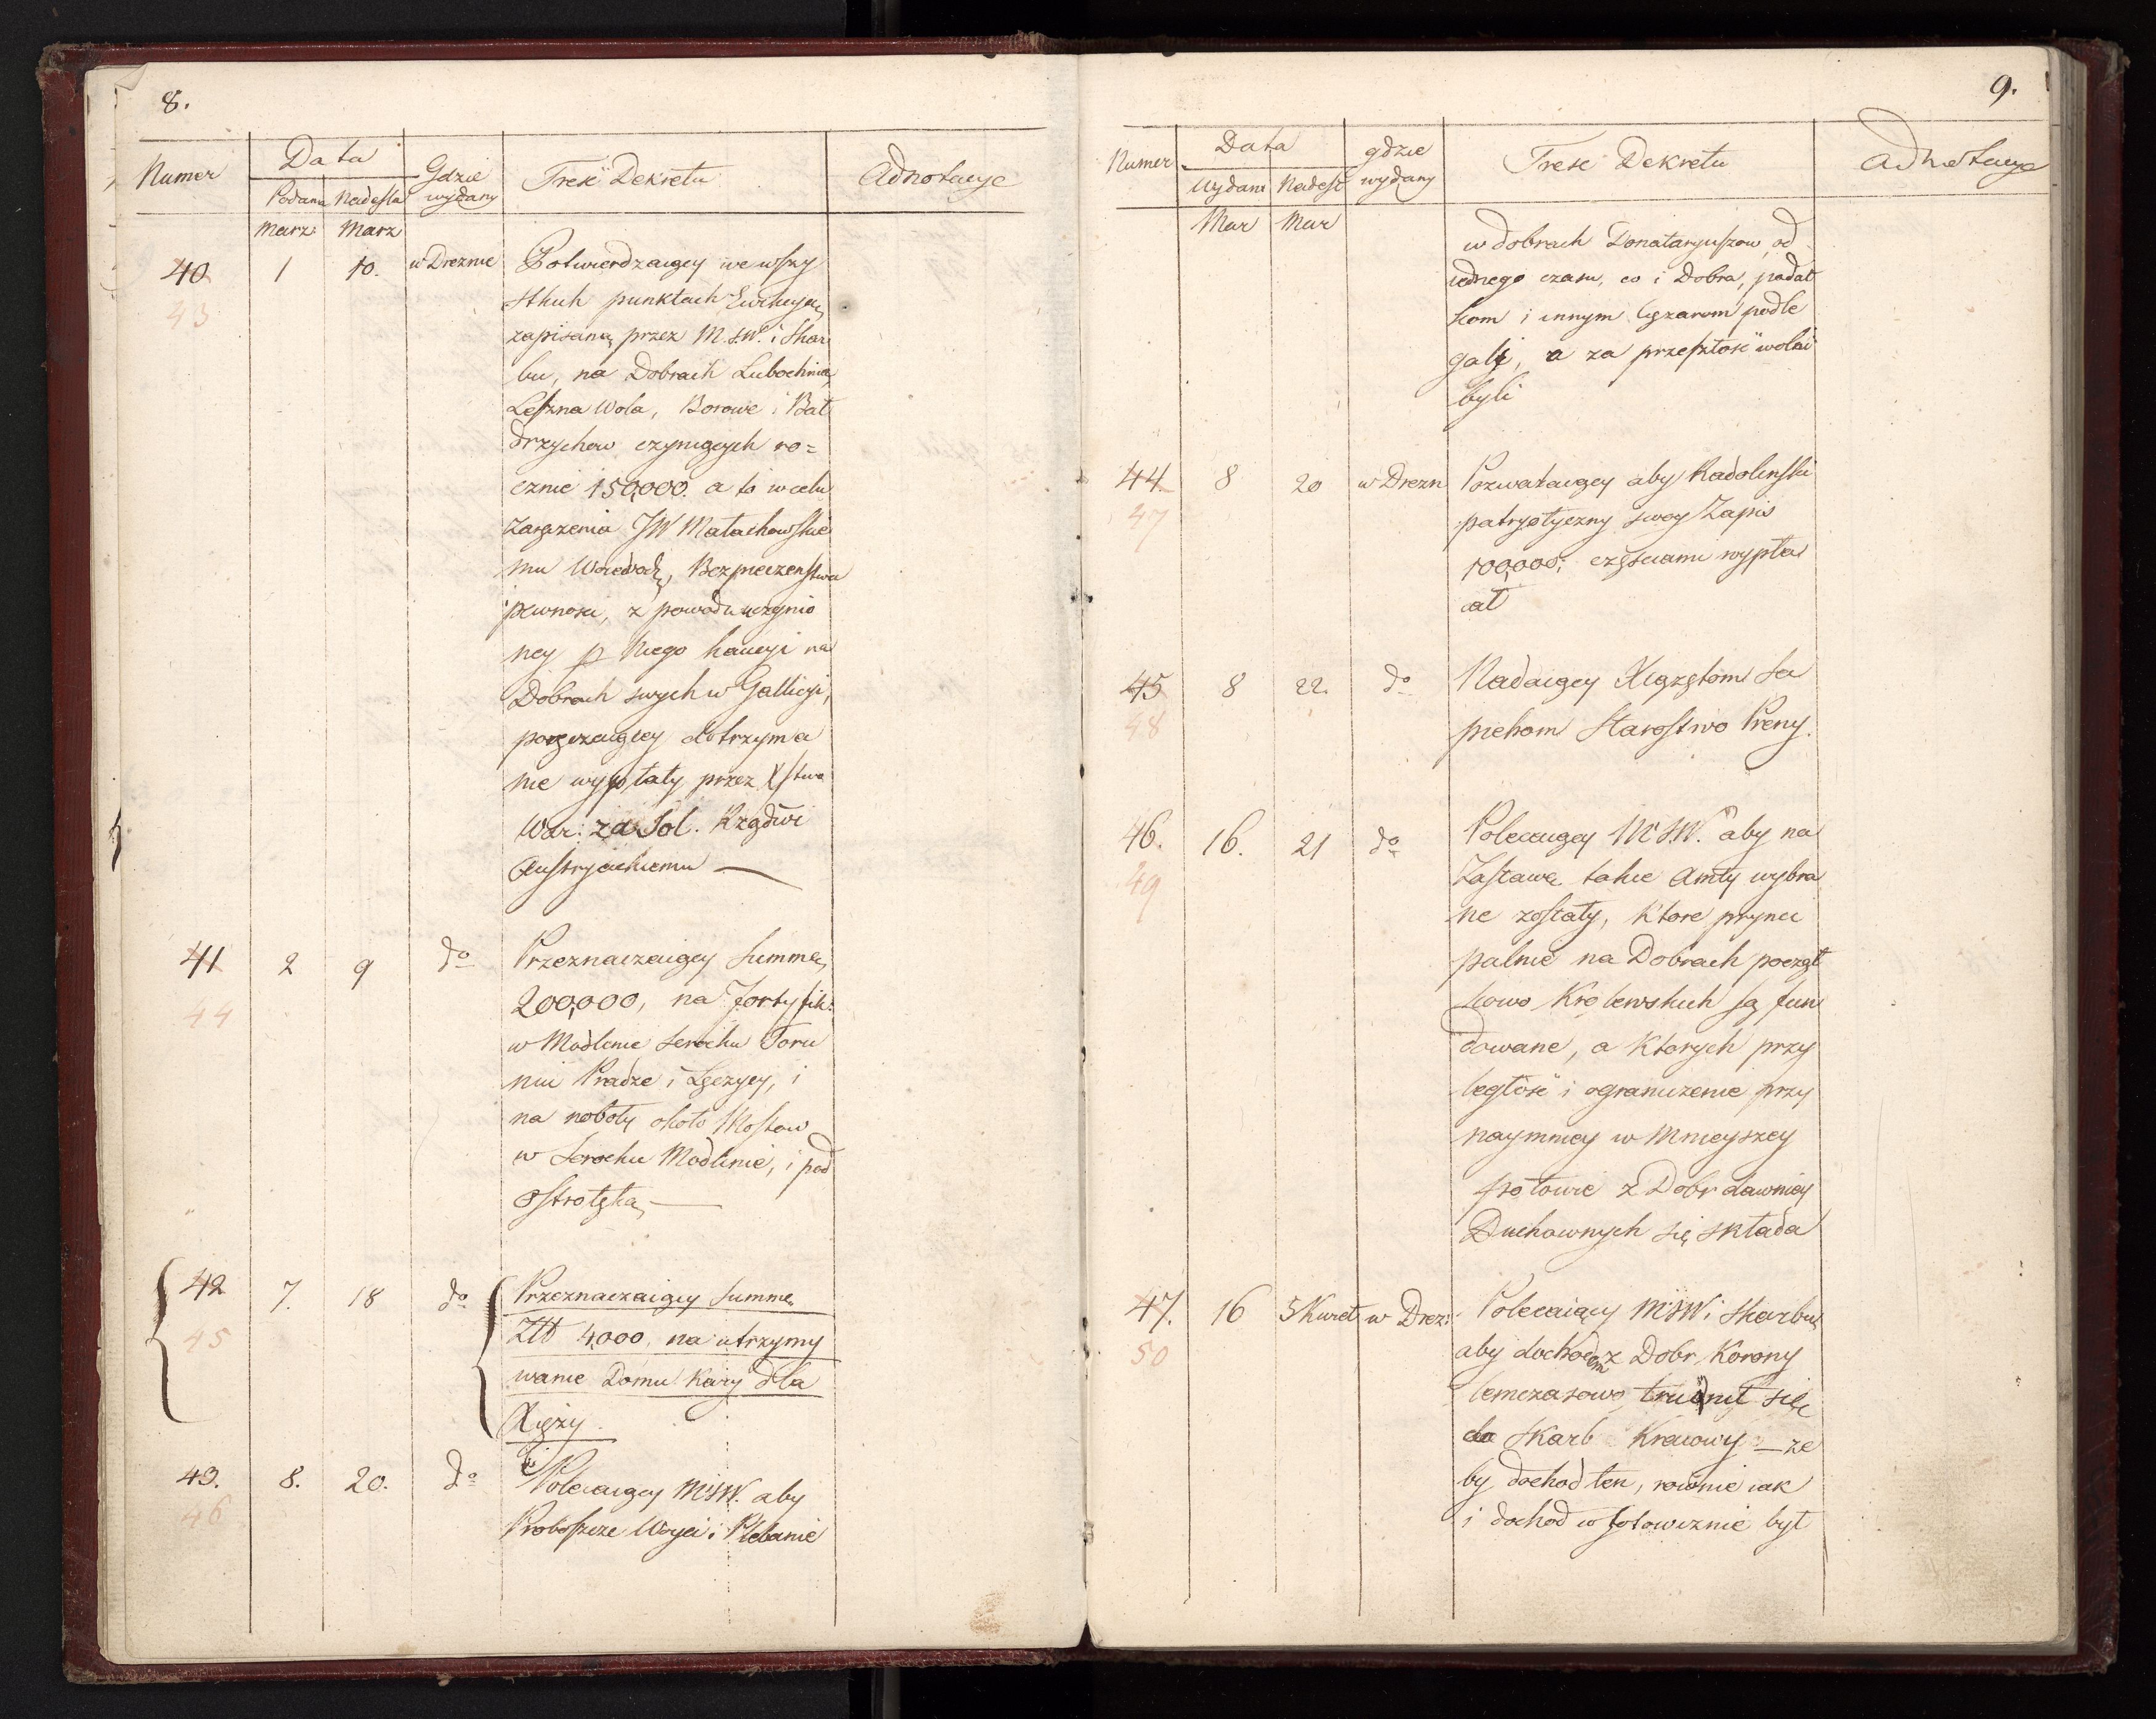 8.
Numer
Data
Gdzie wydany
Treść Dekretu
Adnotacye
Podana
Nadesła
Marz:
Marz
40
43
1
10.
w Dreznie
Potwierdzaiący we wszy
stkich punktach Ewikcyą
zapisaną przez M.S.W. i Skar
bu, na Dobrach Lubochnia,
Leszna Wola, Borowe i Bał
drzychow czyniących ro=
cznie 150,000. a to w celu
zaręczenia JW Małachowskie
mu Woiewodzie, Bezpieczenstwa
i pewnosci, z powodu uczynio
ney p Niego kaucyi na
Dobrach swych w Gallicyi,
poręczaiącey dotrzyma
nie wypłaty przez Xstwo
War: za Sol. Rządwi
Austryackiemu —
41
44
2
9
do
Przeznaczaiący Summę
200,000, na fortyfik:
w Modlinie Serocku Toru
niu Pradze i Łęczycy, i
na roboty około Mostow
w Serocku Modlinie, i pod
Ostrołęką —
42
45
7.
18
do
Przeznaczaiący Summę
Złł 4,000, na utrzymy
wanie Domu Kary dla
Xięży
43.
46
8.
20.
do
Polecaiący MSW. aby
Proboszcze Woyci i Plebanie
9.
Numer
Data
gdzie wydany
Treść Dekretu
Adnotacye
Wydan
Nadesł
Mar
Mar
w dobrach Donataryuszow, od
iednego czasu, co i Dobra, podat
kom i innym Cężarom podle
gali, a za przeszłość wolni
byli
44.
47
8
20
w Drezn
Pozwalaiący aby Radolinski
patryotyczny swoy Zapis
100,000; częściami wypła
cał
45
48
8
22.
do
Nadaiący Xiążętom Sa
piehom Starostwo Preny.
46.
49
16.
21
do
Polecaiący MSW. aby na
Zastawę takie Amty wybra
ne zostały, Ktore prynci
palnie na Dobrach począt
kowo Krolewskich są fun
dowane, a Ktorych przy
ległość i ograniczenie przy
naymniey w Mnieyszey
połowie z Dobr dawniey
Duchownych się składa
47.
50
16
5 Kwiet
w Drez:
Polecaiący MSW i Skarbu,
aby dochodem z Dobr Korony
temczasowo trudnił się
do Skarb Kraiowy — że
by dochod ten, rownie iak
i dochod w gotowiznie był